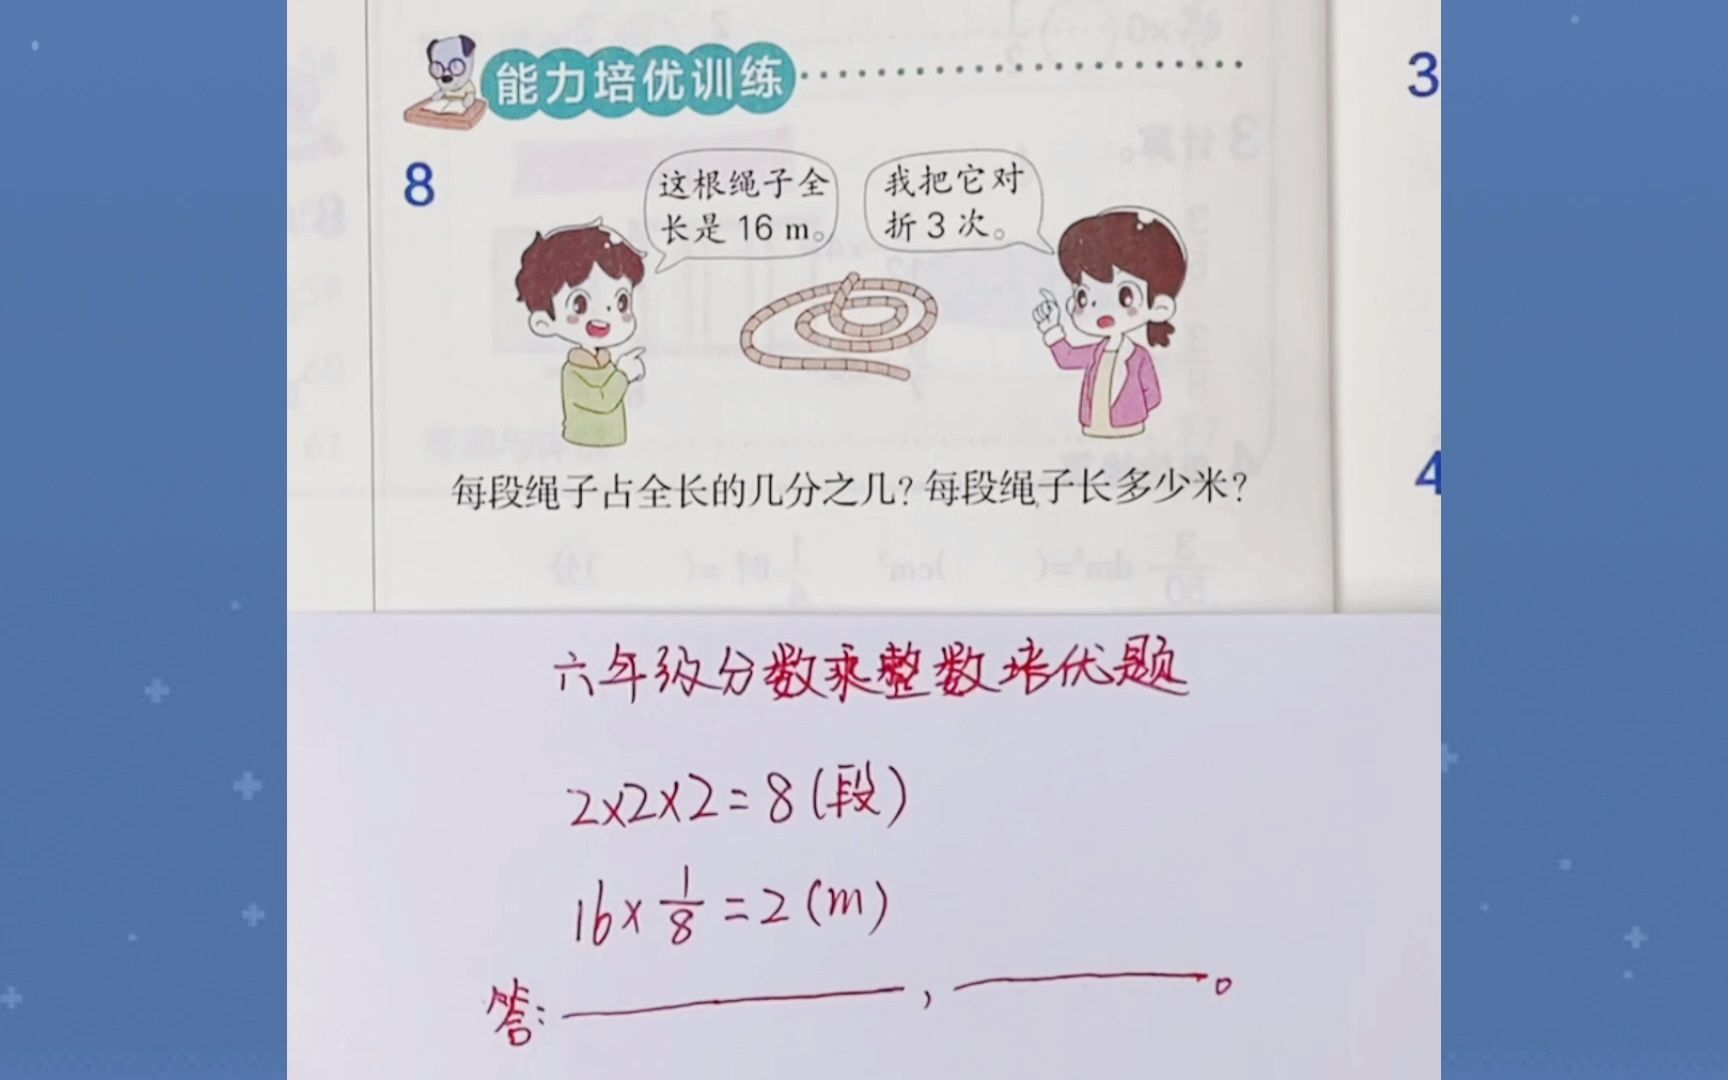 能力培优训练
8
这根绳子全
长是 16 m。
我把它对
折 3 次。
每段绳子占全长的几分之几？每段绳子长多少米？
3
4
六年级分数乘整数培优题
2×2×2=8(段)
16×1/8=2(m)
答：————，————。